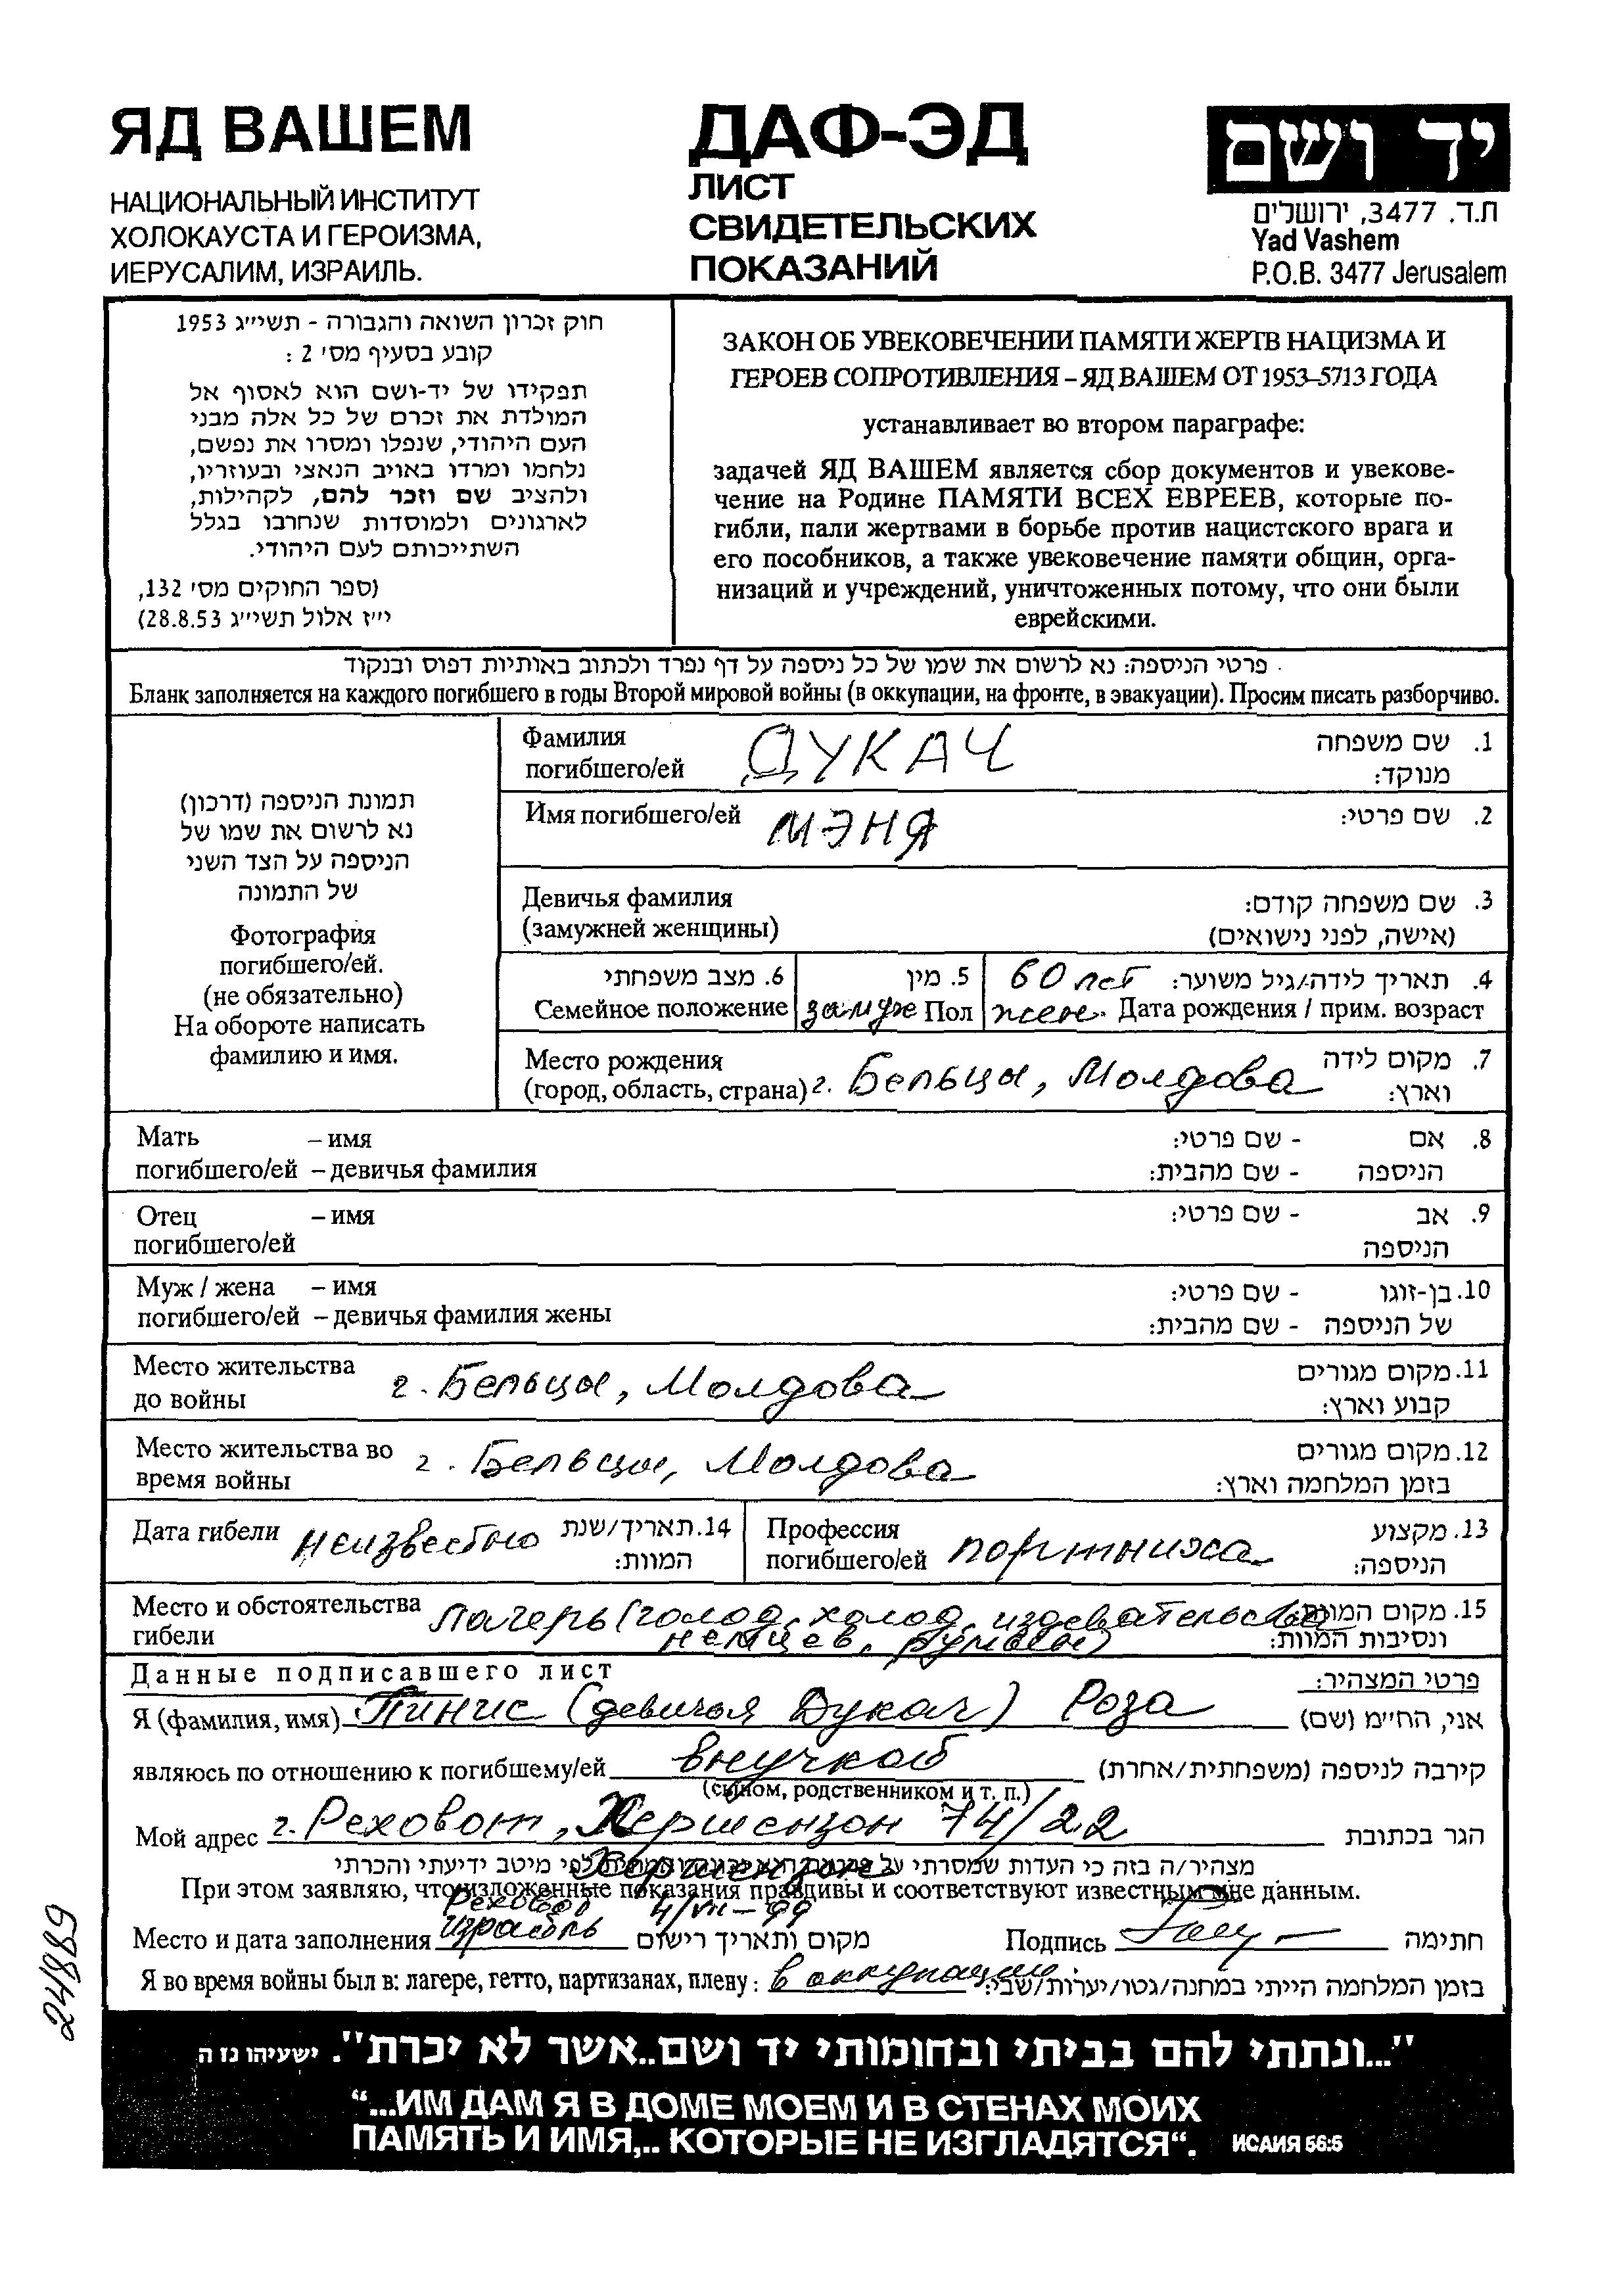 ЯД ВАШЕМ
НАЦИОНАЛЬНЫЙ ИНСТИТУТ
ХОЛОКАУСТА И ГЕРОИЗМА,
ИЕРУСАЛИМ, ИЗРАИЛЬ.
ДАФ-ЭД
ЛИСТ
СВИДЕТЕЛЬСКИХ
ПОКАЗАНИЙ
יד ושם
ת.ד. 3477, ירושלים
Yad Vashem
P.O.B. 3477 Jerusalem
חוק זכרון השואה והגבורה - תשי״ג 1953
קובע בסעיף מס׳ 2 :
תפקידו של יד-ושם הוא לאסוף אל
המולדת את זכרם של כל אלה מבני
העם היהודי, שנפלו ומסרו את נפשם,
נלחמו ומרדו באויב הנאצי ובעוזריו,
ולהציב שם וזכר להם, לקהילות,
לארגונים ולמוסדות שנחרבו בגלל
השתייכותם לעם היהודי.
(ספר החוקים מס׳ 132,
י״ז אלול תשי״ג 28.8.53)
ЗАКОН ОБ УВЕКОВЕЧЕНИИ ПАМЯТИ ЖЕРТВ НАЦИЗМА И
ГЕРОЕВ СОПРОТИВЛЕНИЯ – ЯД ВАШЕМ ОТ 1953–5713 ГОДА
устанавливает во втором параграфе:
задачей ЯД ВАШЕМ является сбор документов и увекове-
чение на Родине ПАМЯТИ ВСЕХ ЕВРЕЕВ, которые по-
гибли, пали жертвами в борьбе против нацистского врага и
его пособников, а также увековечение памяти общин, орга-
низаций и учреждений, уничтоженных потому, что они были
еврейскими.
פרטי הניספה: נא לרשום את שמו של כל ניספה על דף נפרד ולכתוב באותיות דפוס ובנקוד
Бланк заполняется на каждого погибшего в годы Второй мировой войны (в оккупации, на фронте, в эвакуации). Просим писать разборчиво.
תמונת הניספה (דרכון)
נא לרשום את שמו של
הניספה על הצד השני
של התמונה
Фотография
погибшего/ей.
(не обязательно)
На обороте написать
фамилию и имя.
Фамилия ДУКАЧ 1. שם משפחה
погибшего/ей מנוקד:
Имя погибшего/ей МЭНЯ 2. שם פרטי:
Девичья фамилия 3. שם משפחה קודם:
(замужней женщины) (אישה, לפני נישואים)
6. מצב משפחתי 5. מין 60 лет 4. תאריך לידה/גיל משוער:
Семейное положение замуж Пол жен. Дата рождения / прим. возраст
Место рождения 7. מקום לידה
(город, область, страна) г. Бельцы, Молдова וארץ:
Мать – имя - שם פרטי: 8. אם
погибшего/ей – девичья фамилия - שם מהבית: הניספה
Отец – имя - שם פרטי: 9. אב
погибшего/ей הניספה
Муж / жена – имя - שם פרטי: 10. בן-זוגו
погибшего/ей – девичья фамилия жены - שם מהבית: של הניספה
Место жительства г. Бельцы, Молдова 11. מקום מגורים
до войны קבוע וארץ:
Место жительства во г. Бельцы, Молдова 12. מקום מגורים
время войны בזמן המלחמה וארץ:
Дата гибели неизвестно 14. תאריך/שנת המוות:
Профессия погибшего/ей портниха 13. מקצוע הניספה:
Место и обстоятельства лагерь (голод, холод, издевательства 15. מקום המוות
гибели немцев, румын) ונסיבות המוות:
Данные подписавшего лист פרטי המצהיר:
Я (фамилия, имя) Пинис (девичья Дукач) Роза אני, החי״מ (שם)
являюсь по отношению к погибшему/ей внучкой קירבה לניספה (משפחתית/אחרת)
(сыном, родственником и т. п.)
Мой адрес г. Реховот, Хершензон 74/22 הגר בכתובת
Хершензон
מצהיר/ה בזה כי העדות שמסרתי על לפי מיטב ידיעתי והכרתי
При этом заявляю, что изложенные показания правдивы и соответствуют известным мне данным.
Реховот 4/VII–99
Место и дата заполнения Израиль מקום ותאריך רישום Подпись חתימה
Я во время войны был в: лагере, гетто, партизанах, плену: в оккупации בזמן המלחמה הייתי במחנה/גטו/יערות/שבי:
24889
"...ונתתי להם בביתי ובחומותי יד ושם..אשר לא יכרת". ישעיהו נז ה
“...ИМ ДАМ Я В ДОМЕ МОЕМ И В СТЕНАХ МОИХ
ПАМЯТЬ И ИМЯ,.. КОТОРЫЕ НЕ ИЗГЛАДЯТСЯ“. ИСАИЯ 56:5